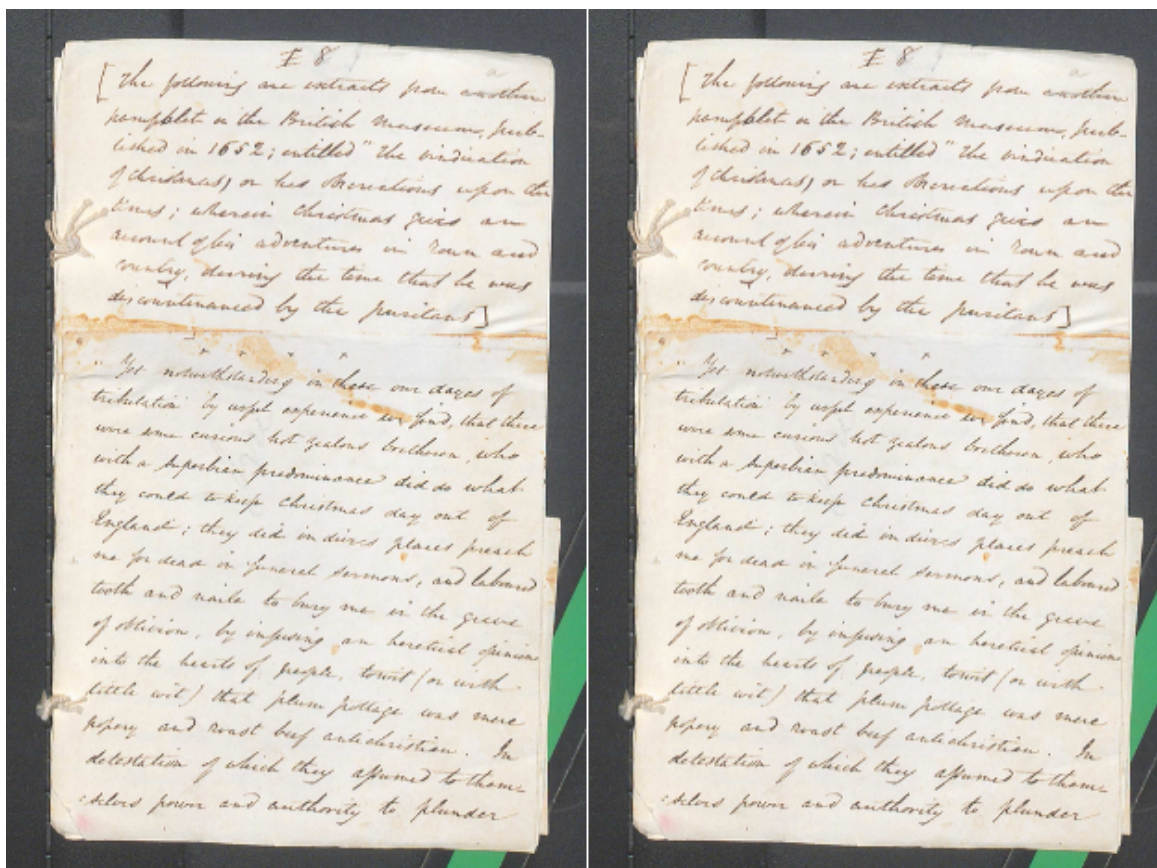 I 8
[The following are extracts from a
pamphlet in the British Museum, pub-
lished in 1652; entitled "The vindication
of Christmas, or his Recreations upon the
times; wherein Christmas gives an
account of his adventures in Town and
country, during the time that he was
discountenanced by the puritans]
" Yet notwithstanding in these our dayes of
tribulation by woful experience we find, that there
were some curious hot zealous bretheren, who
with a superbian predominance did do what
they could to keep Christmas day out of
England; they did in divers places preach
me for dead in funeral sermons, and laboured
tooth and naile to bury me in the grave
of oblivion, by infusing an heretical opinion
into the hearts of people, towit (or with
little wit) that plum pottage was mere
popery and roast beef antichristian. In
detestation of which they assumed to them-
selves power and authority to plunder
I 8
[The following are extracts from a
pamphlet in the British Museum, pub-
lished in 1652; entitled "The vindication
of Christmas, or his Recreations upon the
times; wherein Christmas gives an
account of his adventures in Town and
country, during the time that he was
discountenanced by the puritans]
" Yet notwithstanding in these our dayes of
tribulation by woful experience we find, that there
were some curious hot zealous bretheren, who
with a superbian predominance did do what
they could to keep Christmas day out of
England; they did in divers places preach
me for dead in funeral sermons, and laboured
tooth and naile to bury me in the grave
of oblivion, by infusing an heretical opinion
into the hearts of people, towit (or with
little wit) that plum pottage was mere
popery and roast beef antichristian. In
detestation of which they assumed to them-
selves power and authority to plunder